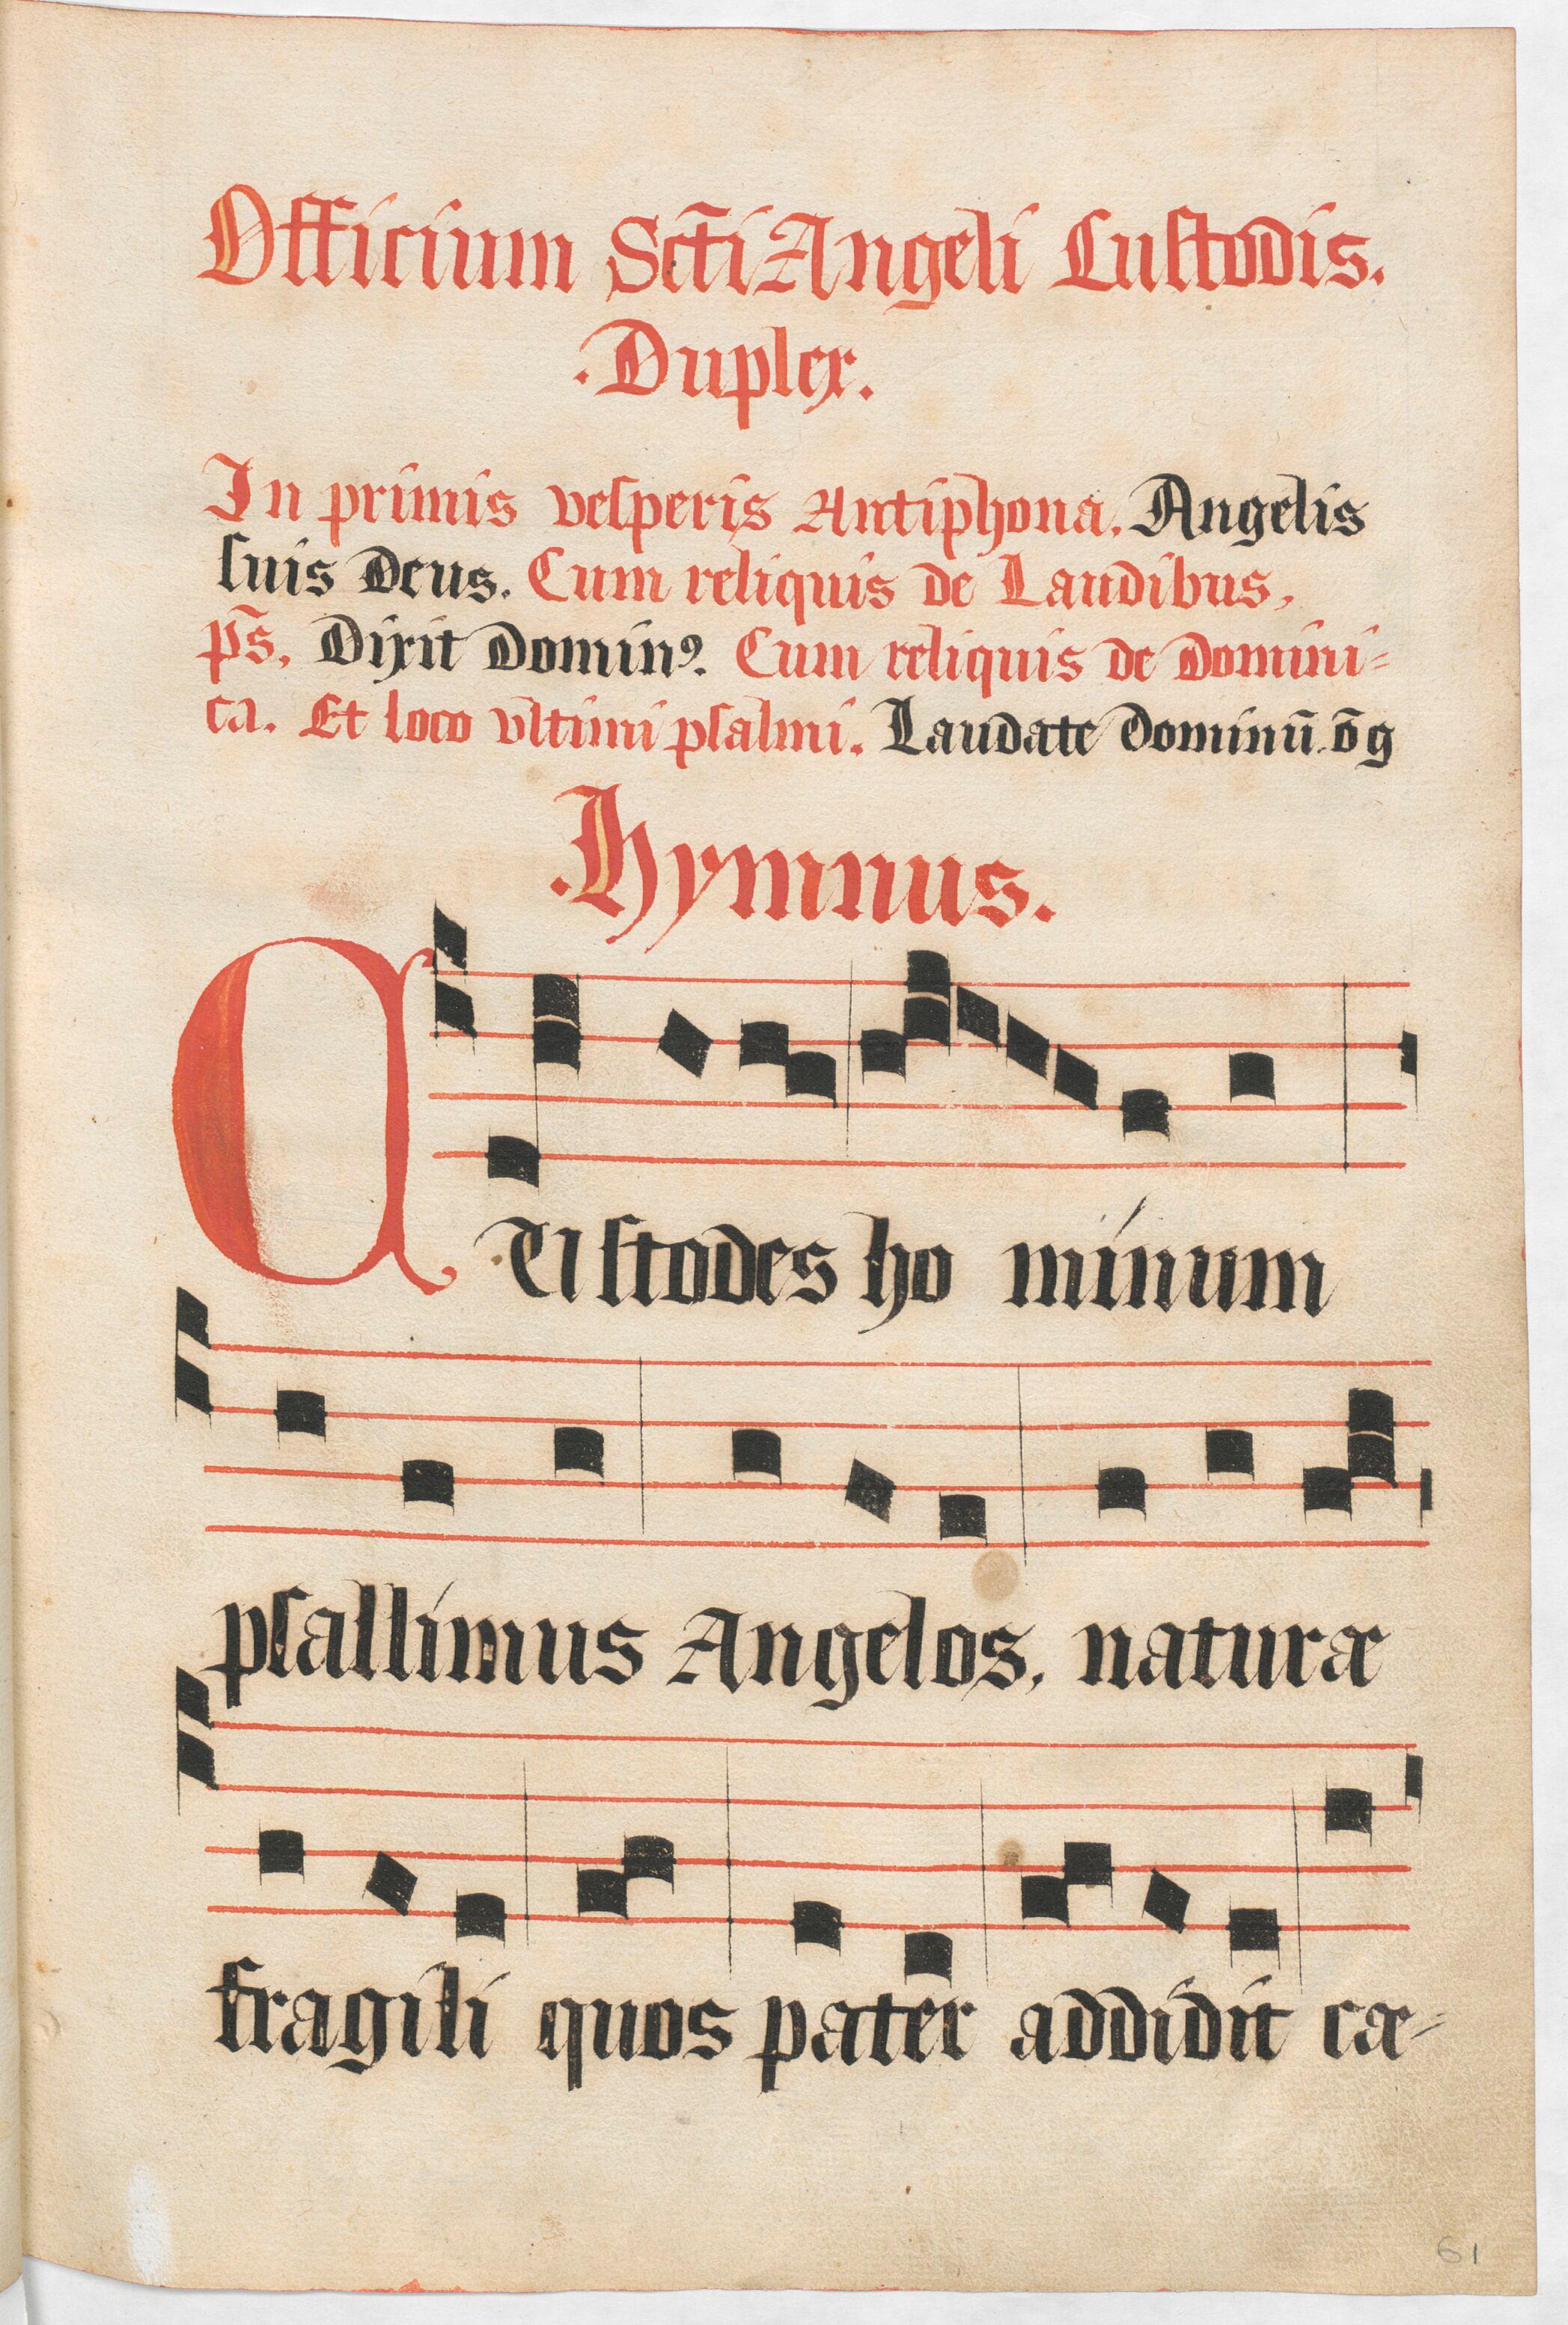 Officium Sc̃ti Angeli Cuſtodis.
.Duplex.
In primis veſperis Antiphona. Angelis
ſuis Deus. Cum reliquis de Laudibus,
ps̃. Dixit Dominꝰ. Cum reliquis de Domini=
ca. Et loco vltimi pſalmi. Laudate Dominũ. õg
.Hymnus.
CUſtodes ho mínum
pſallímus Angelos, naturæ
fragili quos pater addidit cæ=
61